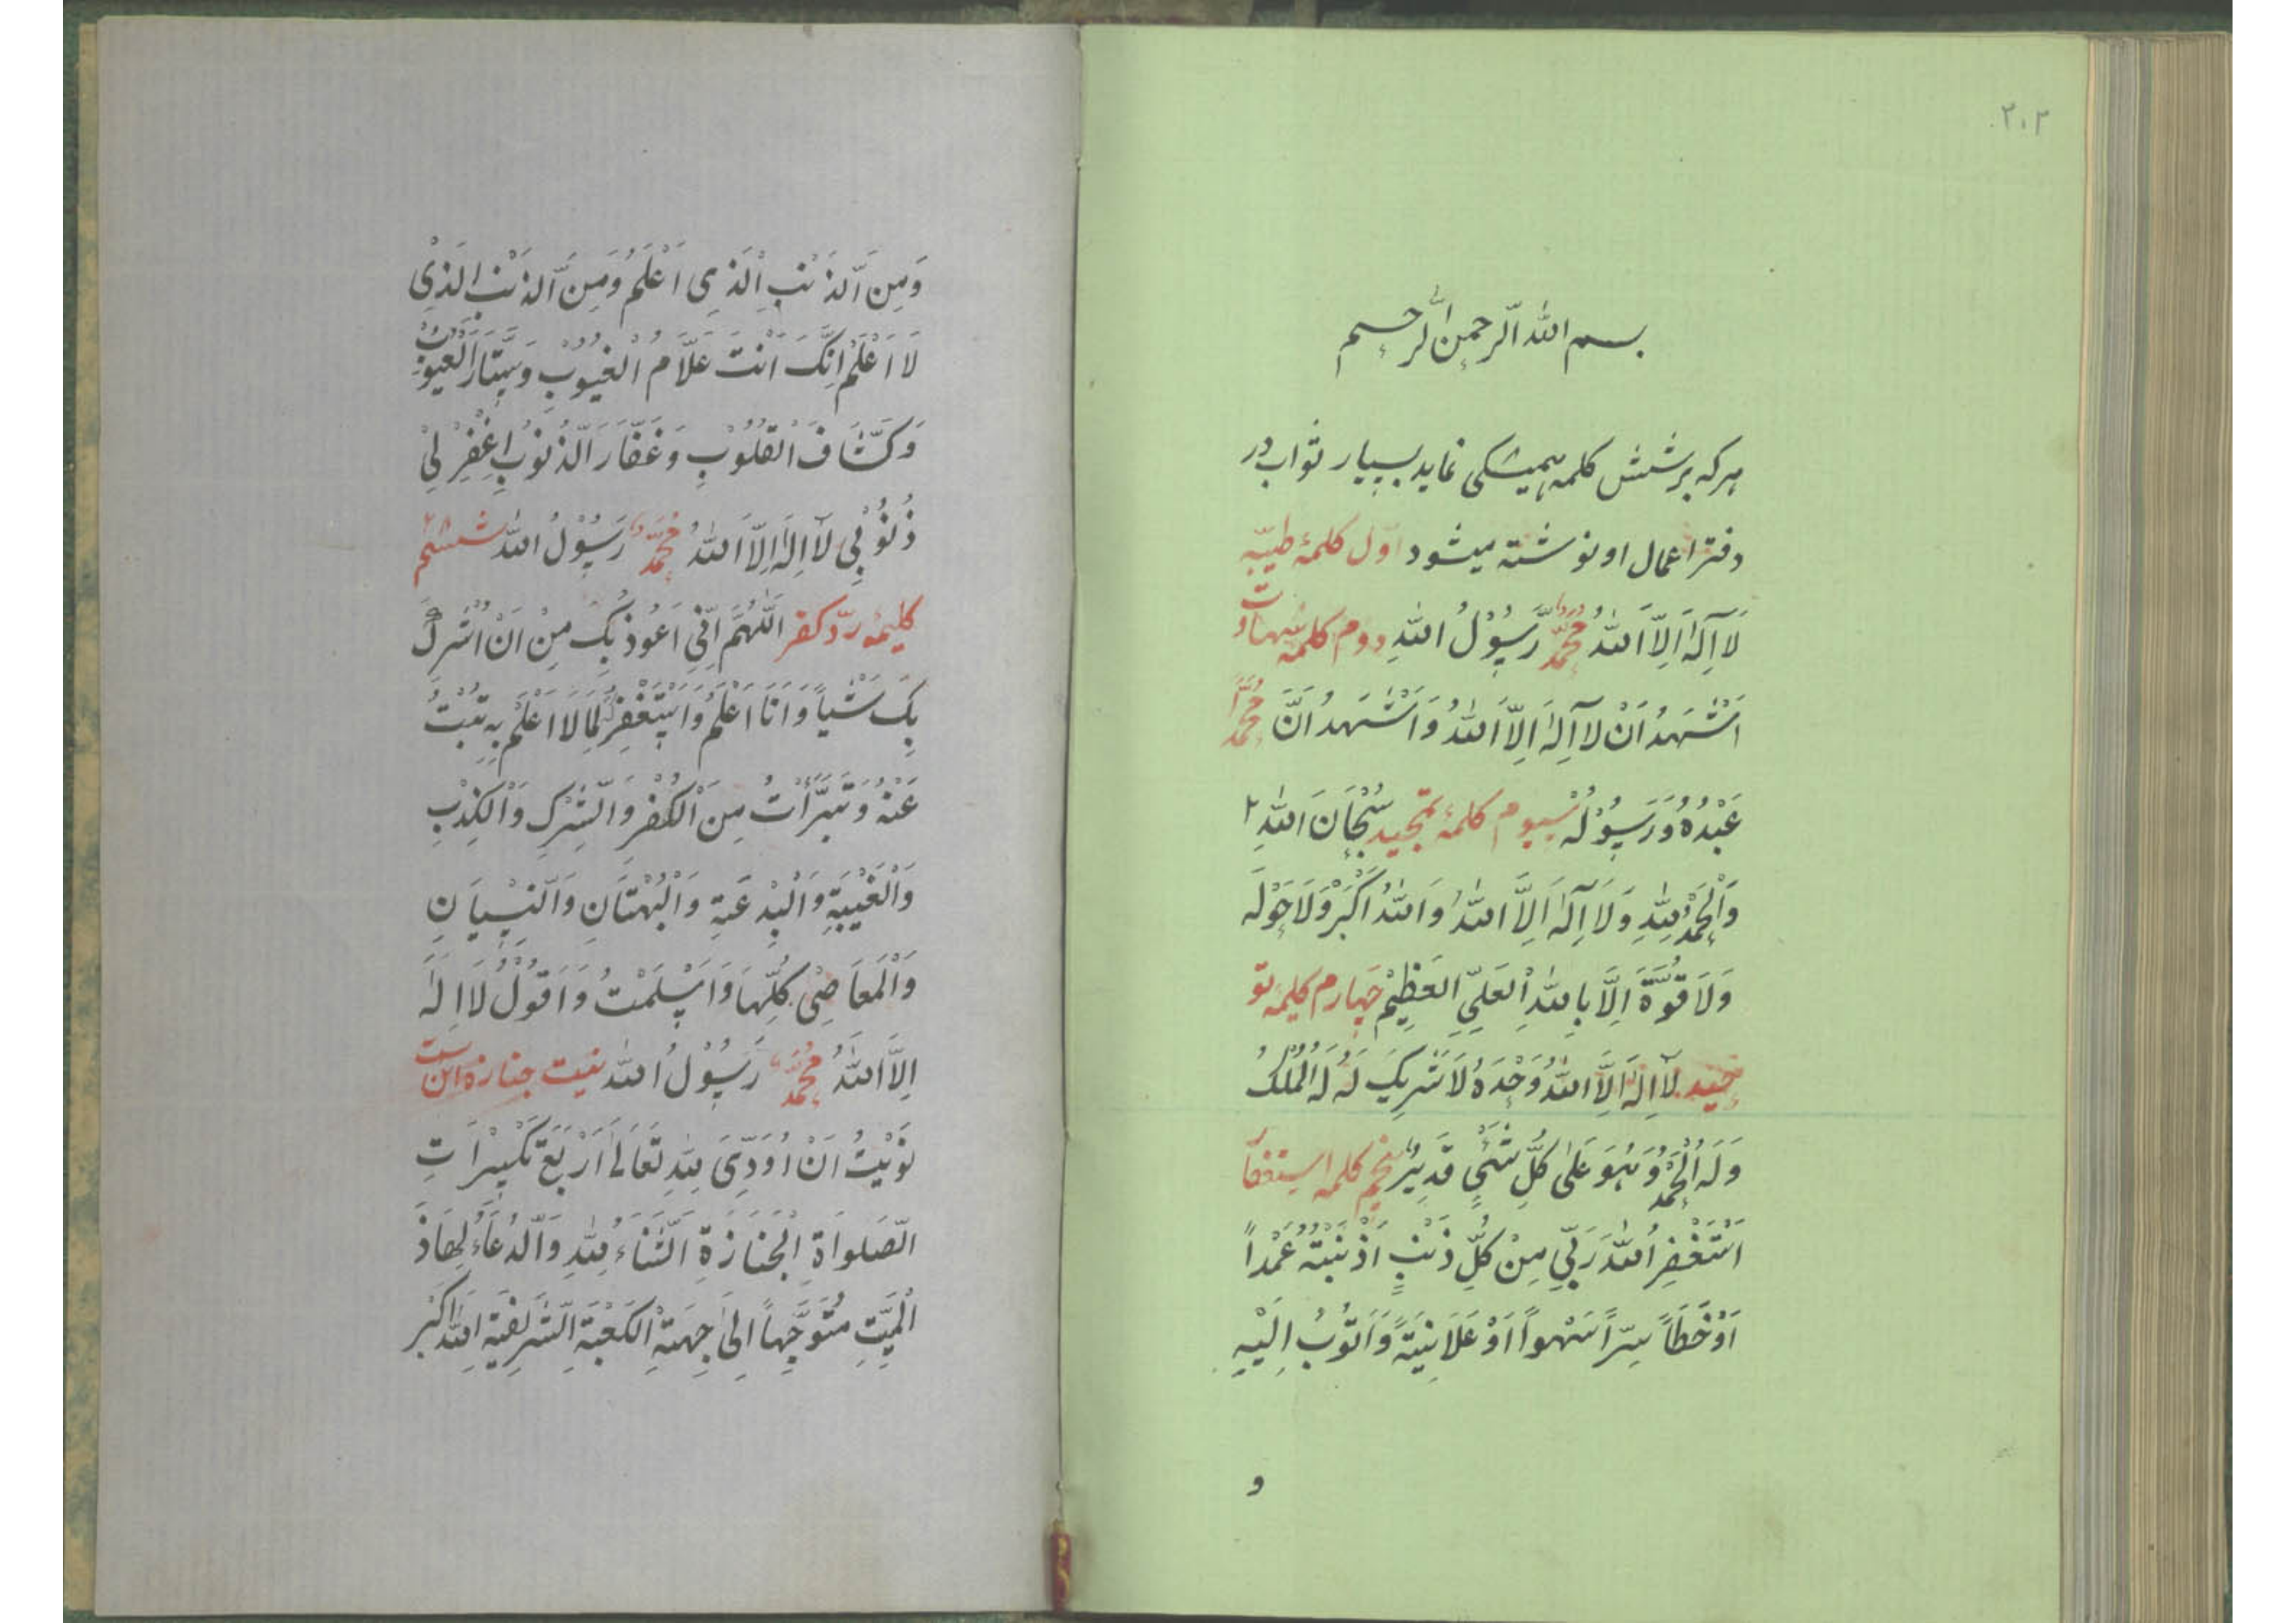 ۲۰۲
بسم الله الرحمن الرحیم
هرکه بر شش کلمه همیشکی نماید بسیار ثواب در
دفتر اعمال او نوشته میشود اول کلمۀ طیبّه
لَا اِلٰهَ اِلَّا اللهُ مُحَمَّدٌ رَّسُوْلُ اللهِ دوم کلمه شهادت
اَشْهَدُ اَنْ لَا اِلٰهَ اِلَّا اللهُ وَاَشْهَدُ اَنَّ مُحَمَّداً
عَبْدُهُ وَرَسُوْلُه سیوم کلمۀ تمجید سُبْحَانَ اللهِ
وَالْحَمْدُ لِلّٰهِ وَلَا اِلٰهَ اِلَّا اللهُ وَاللهُ اَكْبَرْ وَلَا حَوْلَه
وَلَا قُوَّةَ اِلَّا بِاللهِ الْعَلِيِّ العَظِيْمْ چهارم کلیمۀ تو
حید لَا اِلٰهَ اِلَّا اللهُ وَحْدَهُ لَا شَرِيكَ لَهُ لَهُ الْمُلْكُ
وَلَهُ الْحَمْدُ وَهُوَ عَلٰى كُلِّ شَيْءٍ قَدِيْرٌ پنجم کلمه استغفا
اَسْتَغْفِرُ اللهَ رَبِّي مِنْ كُلِّ ذَنْبٍ اَذْنَبْتُهُ عَمْداً
اَوْ خَطَاً سِرّاً سَهْواً اَوْ عَلَانِيَةً وَاَتُوْبُ اِلَيْهِ
و
وَمِنَ الذَنْبِ الَذِي اَعْلَمُ وَمِنَ الذَنْبِ الَذِىْ
لَا اَعْلَمْ اِنَّكَ اَنْتَ عَلَّامُ الْغُيُوْبِ وَسَتَّارَ الْعُيُوْبْ
وَكَشَّافَ الْقُلُوْبِ وَغَفَّارَ الذُنُوْبِ اِغْفِرْ لِيْ
ذُنُوْبِي لَا اِلٰهَ اِلَّا اللهُ مُحَمَّدٌ رَسُوْلُ الله ششم
کلیمۀ ردّ کفر اَللّٰهُمَّ اِنِّي اَعُوذ بِكَ مِنْ اَنْ اُشْرِكَ
بِكَ شَيْاً وَاَنَا اَعْلَمُ وَاَسْتَغْفِرُ لِمَا لَا اَعْلَمْ بِهِ تُبْتُ
عَنْهُ وَتَبَرَّأْتُ مِنَ الْكُفْرِ وَالشِّرْكِ وَالْكِذْبِ
وَالْغَيْبَةِ وَالْبِدْعَةِ وَالْبُهْتَانِ وَالنِسْيَانِ
وَالْمَعَاصِىْ كُلِّهَا وَاَسْلَمْتُ وَاَقُوْلُ لَا اِلٰهَ
اِلَّا اللهُ مُحَمَّدٌ رَسُوْلُ الله نیت جنازه این است
نَوَيْتُ اَنْ اُؤَدِّىَ لِلّٰهِ تَعَالَى اَرْبَعَ تَكْبِيْرَاتِ
الصَّلوَاةِ الْجَنَازَةِ اَلثَّنَاءُ لِلّٰهِ وَالدُعَاءُ لِهَاذَ
الْمَيِّتِ مُتَوَجِّهاً اِلَى جِهَةِ الْكَعْبَةِ الشَرِيفَةِ اَللهُ اَكْبَرْ